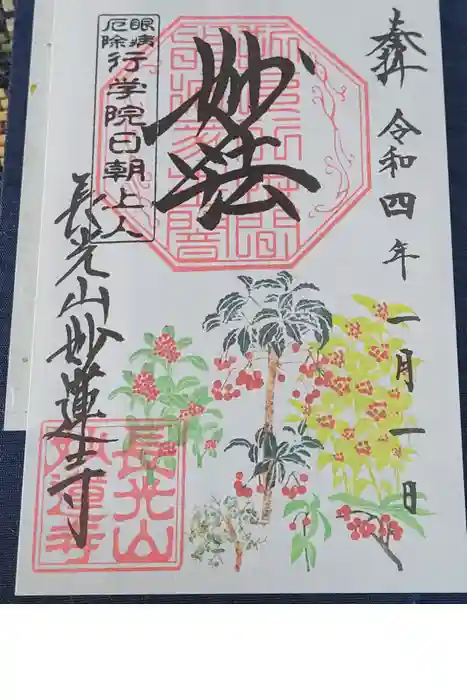 奉拝
令和四年
一月一日
妙法
眼病
厄除
行学院日朝上人
長光山妙蓮寺
長光山
妙蓮寺